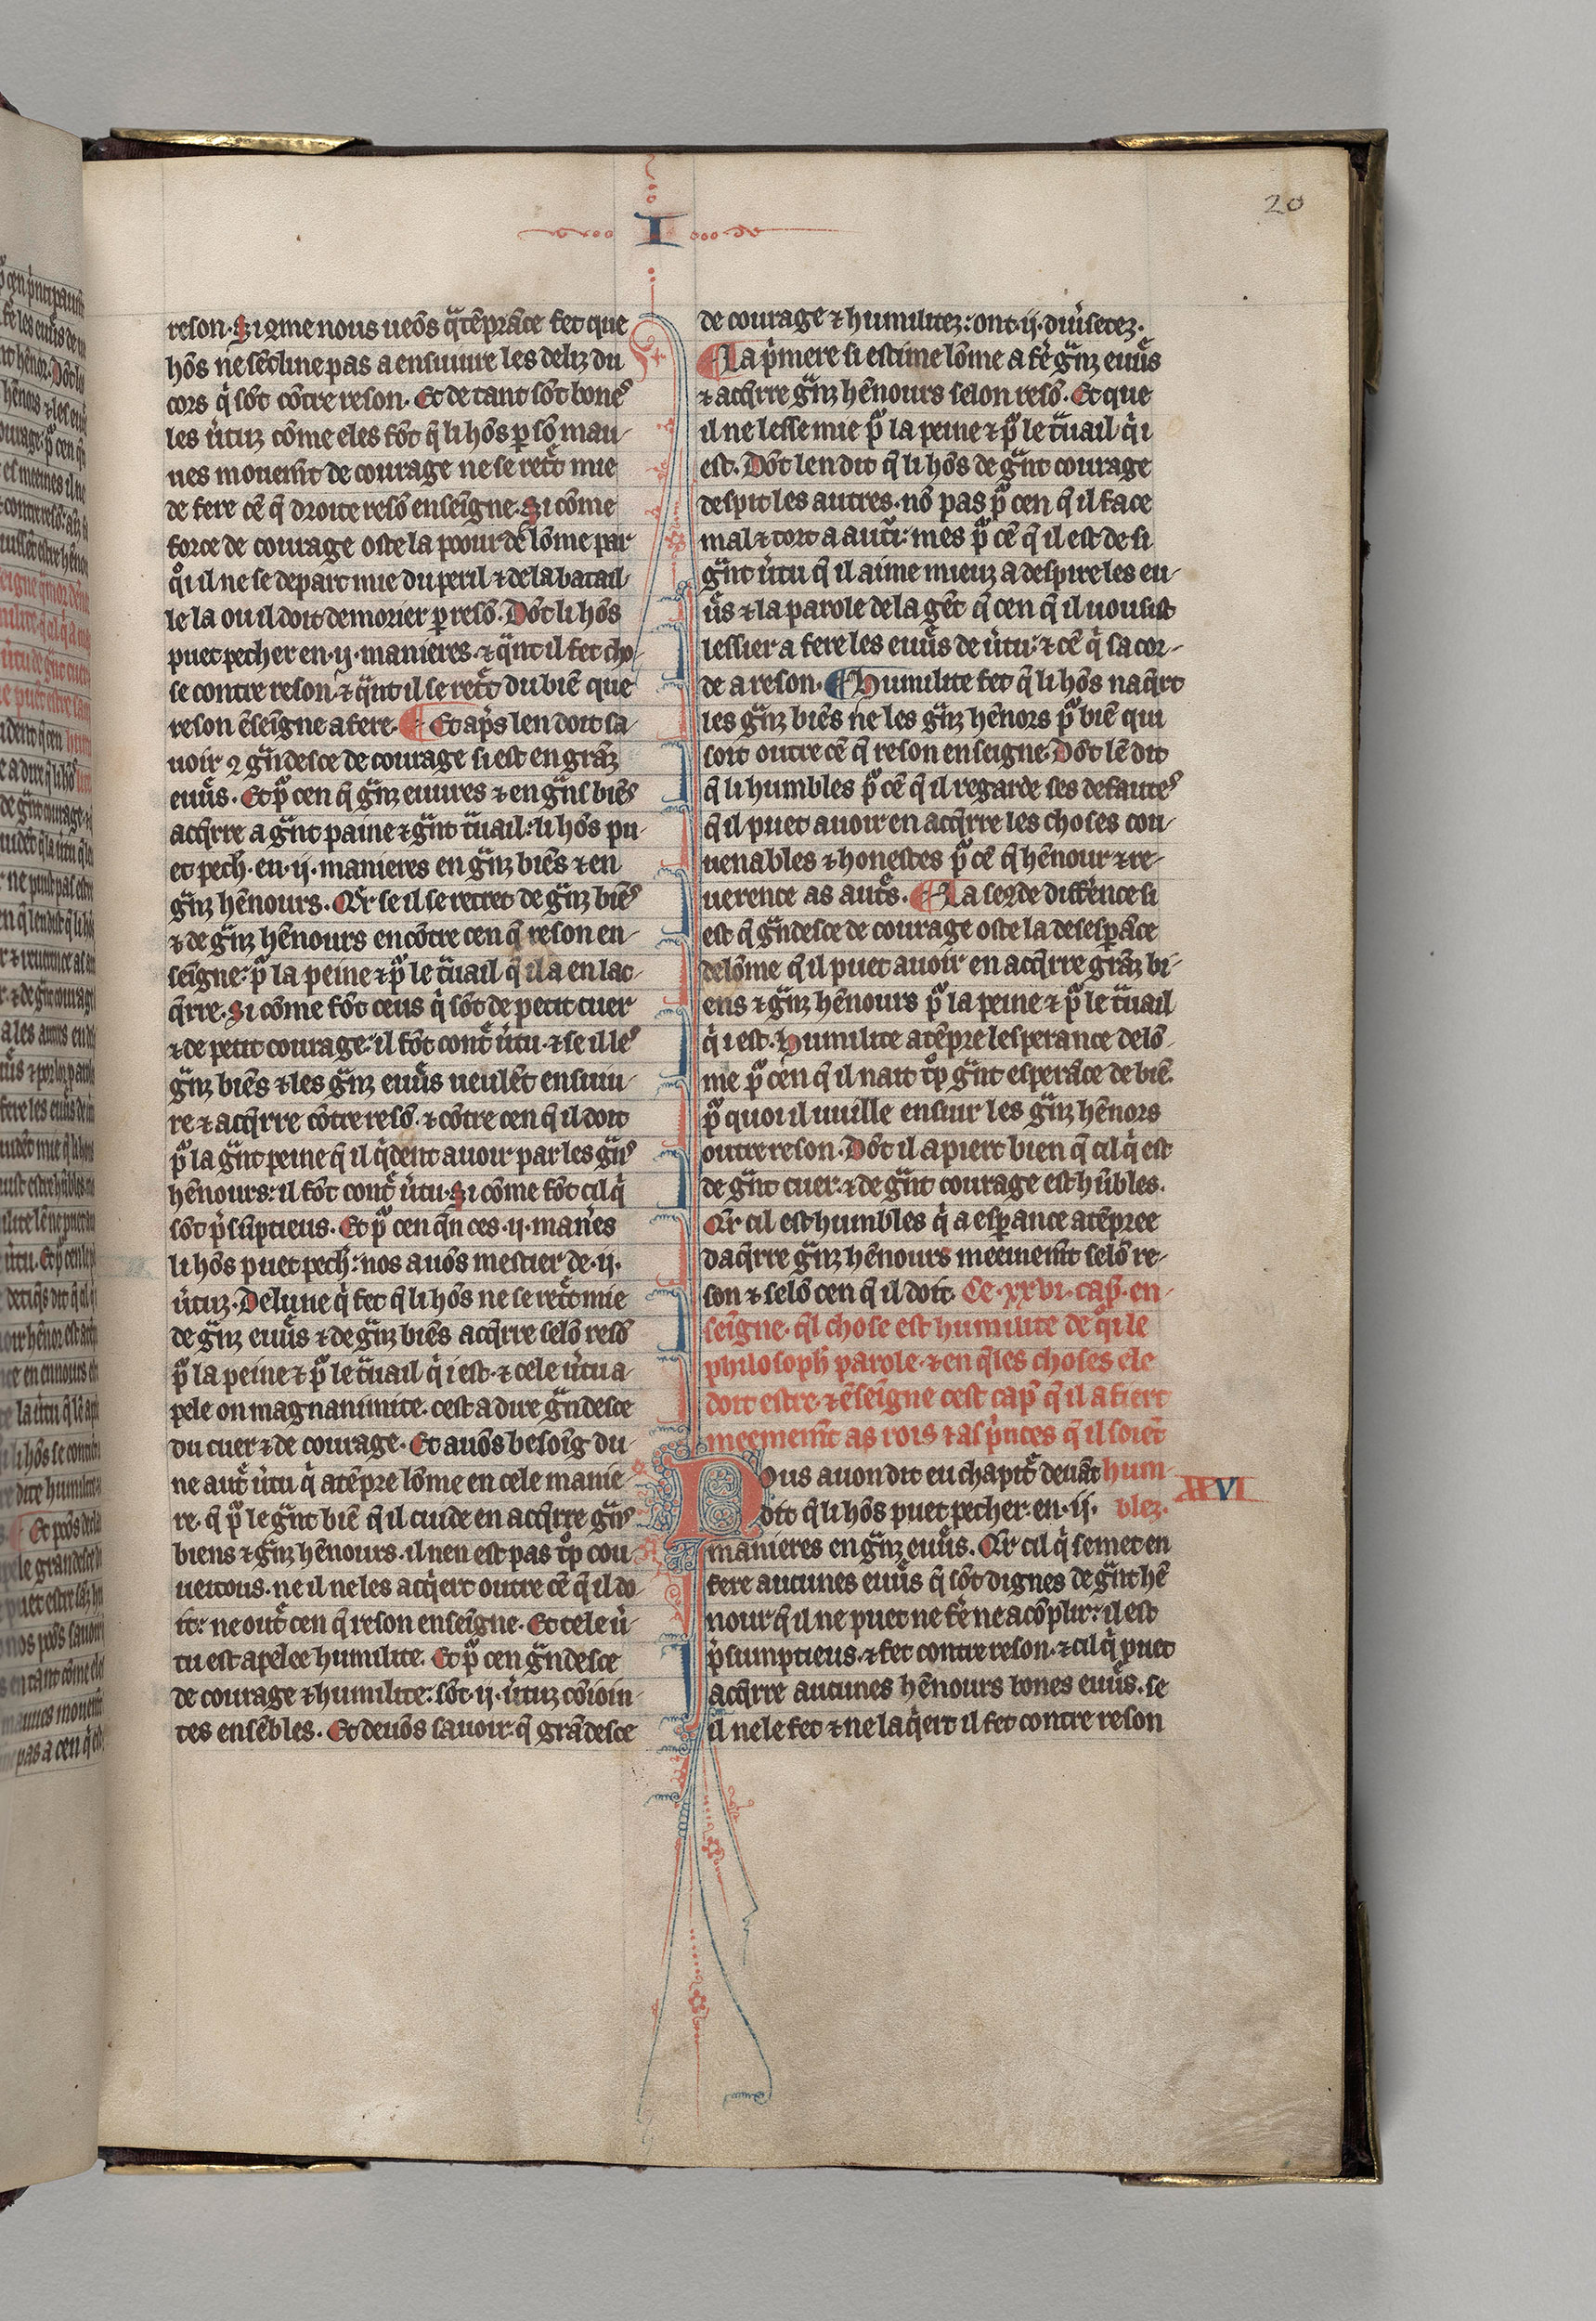 20
I
reson. Si 9me nous ueōs q̃ tēprāce fet que
hōs ne sēcline pas a ensuiure les deliz du
cors q̇ sōt cōtre reson. Et de tant sōt bones
les u̇tuz cōme eles fōt q̄ li hōs ꝑ sō mau-
ues mouem̄t de courage ne se ret̃t mie
de fere cē q̄ droite resō enseīgne. Si cōme
force de courage oste la poour de lōme par
qͦi il ne se depart mie du peril ⁊ de la batail-
le la ou il doit demorier ꝑ resō. Dōt li hōs
puet pecher en .ij. manieres. ⁊ q̃nt il fet cho-
se contre reson. ⁊ q̃nt il se ret̃t du biē que
reson ēseīgne a fere. ¶ Et ap̄s len doit sa-
uoir 9 g̃ndesce de courage si est en grāz
euũs. Et pͦ cen q̄ g̃nz euures ⁊ en g̃ns biēs
acq̄rre a g̃nt paine ⁊ g̃nt t̃uail: li hōs pu-
et pech̄. en .ij. manieres en g̃nz biēs ⁊ en
g̃nz hēnours. Q̃r se il se retret de g̃nz biēs
⁊ de g̃nz hēnours encōtre cen q̄ reson en-
seīgne: pͦ la peine ⁊ pͦ le t̃uail q̄ il a en lac-
q̄rre. Si cōme fōt ceus q̇ sōt de petit cuer
⁊ de petit courage: il fōt cont̃ u̇tu. ⁊ se il les
g̃nz biēs ⁊ les g̃nz euũs ueulēt ensuiu-
re ⁊ acq̄rre cōtre resō. ⁊ cōtre cen q̄ il doit
pͦ la g̃nt peine q̄ il q̇dent auoir par les g̃ns
hēnours: il fōt cont̃ u̇tu. Si cōme fōt cil q̇
sōt p̄sūptieus. Et pͦ cen q̄n ces .ij. man̄es
li hōs puet pech̄: nos auōs mestier de .ij.
u̇tuz. De lune q̇ fet q̄ li hōs ne se ret̃t mie
de g̃nz euũs ⁊ de g̃nz biēs acq̄rre selō resō
pͦ la peine ⁊ pͦ le t̃uail q̇ i est. ⁊ cele u̇tu a-
pele on magnanimite. cest a dire g̃ndesce
du cuer ⁊ de courage. Et auōs besoīg du-
ne aut̃ u̇tu q̇ atēpre lōme en cele manie-
re. q̄ pͦ le g̃nt biē q̄ il cuide en acq̄rre g̃ns
biens ⁊ g̃nz hēnours. il nen est pas tͦp cou-
ueitous. ne il ne les acq̇ert outre cē q̄ il do-
it: ne out̃ cen q̄ reson enseīgne. Et cele u̇-
tu est apelee humilite. Et pͦ cen g̃ndesce
de courage ⁊ humilite: sōt .ij. u̇tuz cōioin-
tes ensēbles. Et deuōs sauoir q̄ grādesce
de courage ⁊ humilitez: ont .ij. diu̇setez.
¶ La ṗmere si estime lōme a fē g̃nz euũs
⁊ acq̄rre g̃nz hēnours selon resō. Et que
il ne lesse mie pͦ la peine ⁊ pͦ le t̃uail q̇ i
est. Dōt len dit q̄ li hōs de g̃nt courage
despit les autres. nō pas pͦ cen q̄ il face
mal ⁊ tort a aut̃i: mes pͦ cē q̄ il est de si
g̃nt u̇tu q̄ il aime mieuz a despire les eu-
ũs ⁊ la parole de la gēt q̄ cen q̄ il uousist
lessier a fere les euũs de u̇tu: ⁊ cē q̇ sacor-
de a reson. ¶ Humilite fet q̄ li hōs naq̄rt
les g̃nz biēs ne les g̃nz hēnors pͦ biē qui
soit outre cē q̄ reson enseigne. Dōt lē dit
q̄ li humbles pͦ cē q̄ il regarde ses defautes
q̄ il puet auoir en acq̄rre les choses cou-
uenables ⁊ honestes pͦ cē q̄ hēnour ⁊ re-
uerence as aut̃s. ¶ La se9de diffēnce si
est q̄ g̃ndesce de courage oste la desesꝑāce
de lōme q̄ il puet auoir en acq̄rre grāz bi-
ens ⁊ g̃nz hēnours pͦ la peine ⁊ pͦ le t̃uail
q̇ i est. Humilite atēpre lesperance de lō-
me pͦ cen q̄ il nait tͦp g̃nt esperāce de biē.
pͦ quoi il uuille ensuir les g̃nz hēnors
outre reson. Dōt il apiert bien q̄ cil q̇ est
de g̃nt cuer. ⁊ de g̃nt courage est hūbles.
Q̃r cil est humbles q̇ a esꝑance atēpree
dacq̄rre g̃nz hēnours meemem̄t selō re-
son ⁊ selō cen q̄ il doit. Ce .xxvi. cap̄. en-
seīgne. q̄l chose est humilite de qͦi le
philosoph̄ parole. ⁊ en q̄les choses ele
doit estre. ⁊ ēseīgne cest cap̄ q̄ il afiert
meemem̄t as rois ⁊ as ṗnces q̄ il soiēt
Nous auon dit eu chapit̃ deuāt hum-
dit q̄ li hōs puet pecher. en .ij. blez.
XXVI
manieres en g̃nz euũs. Q̃r cil q̇ se met en
fere aucunes euũs q̄ sōt dignes de g̃nt hē-
nour q̄ il ne puet ne fē ne acōplir: il est
p̄sumptieus. ⁊ fet contre reson. ⁊ cil q̇ puet
acq̄rre aucunes hēnours bones euũs. se
il ne le fet ⁊ ne laq̇ert il fet contre reson